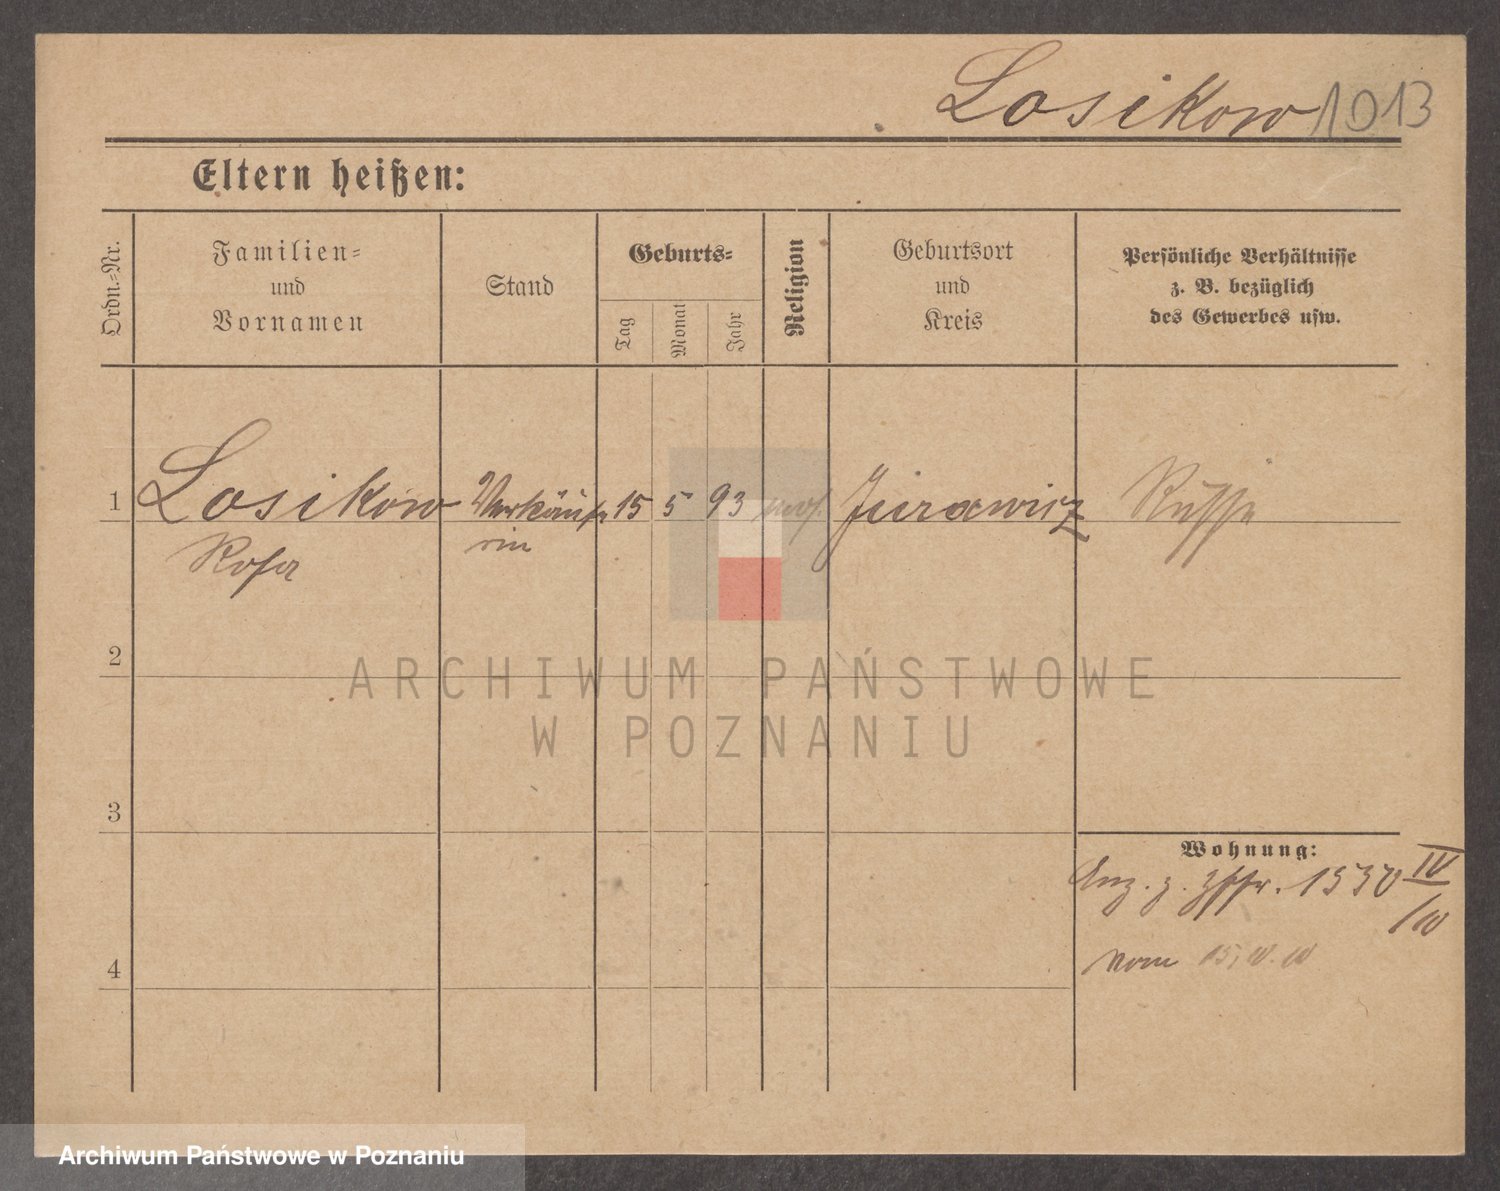 Losikow 1013
Eltern heißen:
Ordn.-Nr.
Familien-
und
Vornamen
Stand
Geburts-
Tag
Monat
Jahr
Religion
Geburtsort
und
Kreis
Persönliche Verhältnisse
z. B. bezüglich
des Gewerbes usw.
1
Losikow
Rosa
Verkäufe
rin
15
5
93
mos.
Jurawicz
Russe
2
3
4
Wohnung:
IV
vom
ARCHIWUM PAŃSTWOWE
W POZNANIU
Archiwum Państwowe w Poznaniu